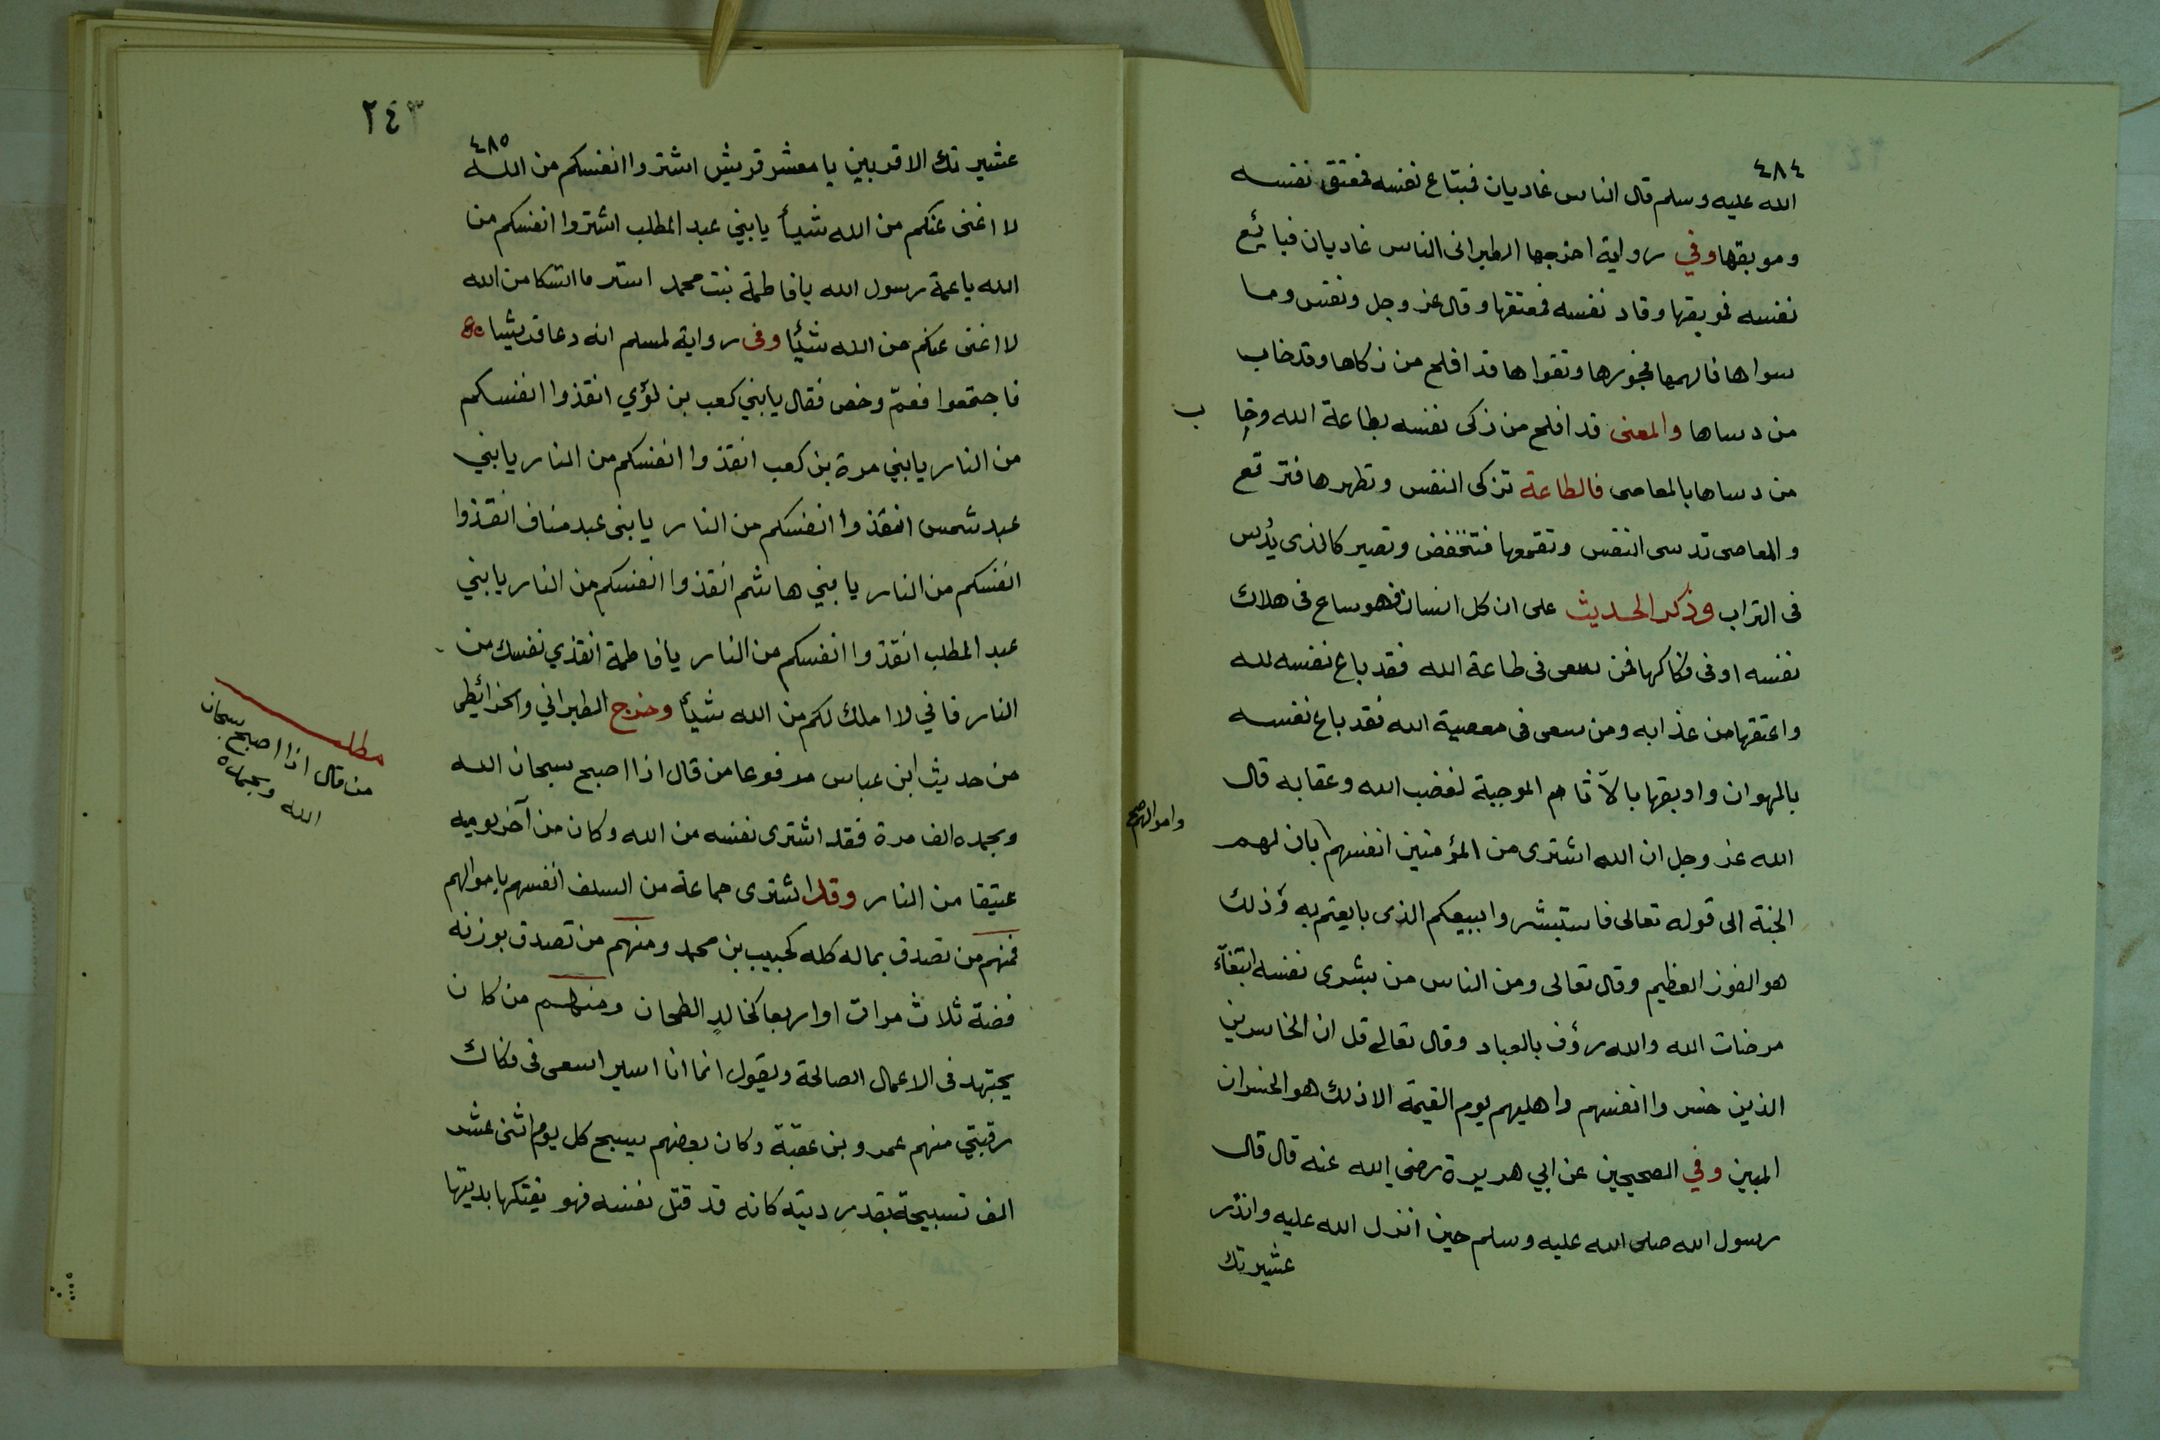 ٤٨٤
الله عليه وسلم قال الناس غاديان فمبتاع نفسه فمعتق نفسه
وموبقها وفي رواية اخرجها الطبرانى الناس غاديان فبائع
نفسه فموبقها وفاد نفسه فمعتقها وقال عز وجل ونفس وما
سواها فالهمها فجورها وتقواها قد افلح من زكاها وقد خاب
من دساها والمعنى قد افلح من زكى نفسه بطاعة الله وخا ب
من دساها بالمعاصى فالطاعة تزكى النفس وتطهرها فترتفع
والمعاصى تدسى النفس وتقمعها فتنخفض وتصير كالذى يُدس
فى التراب وذكر الحديث على ان كل انسان فهو ساع فى هلاك
نفسه او فى فكاكها فمن سعى فى طاعة الله فقد باع نفسه لله
واعتقها من عذابه ومن سعى فى معصية الله فقد باع نفسه
بالهوان واوبقها بالآثام الموجبة لغضب الله وعقابه قال
الله عز وجل ان الله اشترى من المؤمنين انفسهم بان لهم
واموالهم صح
الجنة الى قوله تعالى فاستبشروا ببيعكم الذى بايعتم به وذلك
هو الفوز العظيم وقال تعالى ومن الناس من يشرى نفسه ابتغآء
مرضات الله والله رؤف بالعباد وقال تعالى قل ان الخاسرين
الذين خسروا انفسهم واهليهم يوم القيمة الا ذلك هو الخسران
المبين وفي الصحيحين عن ابي هريرة رضى الله عنه قال قال
رسول الله صلى الله عليه وسلم حين انزل الله عليه وانذر
عشيرتك
٢٤٣
٤٨٥
عشيرتك الاقربين يا معشر قريش اشتروا انفسكم من الله
لا اغنى عنكم من الله شيأ يا بني عبد المطلب اشتروا انفسكم من
الله يا عمة رسول الله يا فاطمة بنت محمد اشتريا انفسكما من الله
لا اغنى عنكم من الله شيئا وفى رواية لمسلم انه دعا قريشا
فاجتمعوا فعمّ وخص فقال يا بني كعب بن لؤي انقذوا انفسكم
من النار يا بني مرة بن كعب انقذوا انفسكم من النار يا بني
عبد شمس انقذوا انفسكم من النار يا بنى عبد مناف انقذوا
انفسكم من النار يا بني هاشم انقذوا انفسكم من النار يا بني
عبد المطلب انقذوا انفسكم من النار يا فاطمة انقذي نفسك من
النار فاني لا املك لكم من الله شيأ وخرج الطبراني والخرائطى
من حديث ابن عباس مرفوعا من قال اذا اصبح سبحان الله
وبحمده الف مرة فقد اشترى نفسه من الله وكان من آخر يوميه
عتيقا من النار وقد اشترى جماعة من السلف انفسهم باموالهم
فمنهم من تصدق بماله كله كحبيب بن محمد ومنهم من تصدق بوزنه
فضة ثلاث مرات او اربعا كخالدٍ الطحان ومنهم من كان
يجتهد فى الاعمال الصالحة ويقول انما انا اسير اسعى فى فكاك
رقبتي منهم عمرو بن عقبة وكان بعضهم يسبح كل يوم اثنى عشر
الف تسبيحة بقدر ديته كانه قد قتل نفسه فهو يفتكها بديتها
مطلب
من قال اذا اصبح سبحان
الله وبحمده